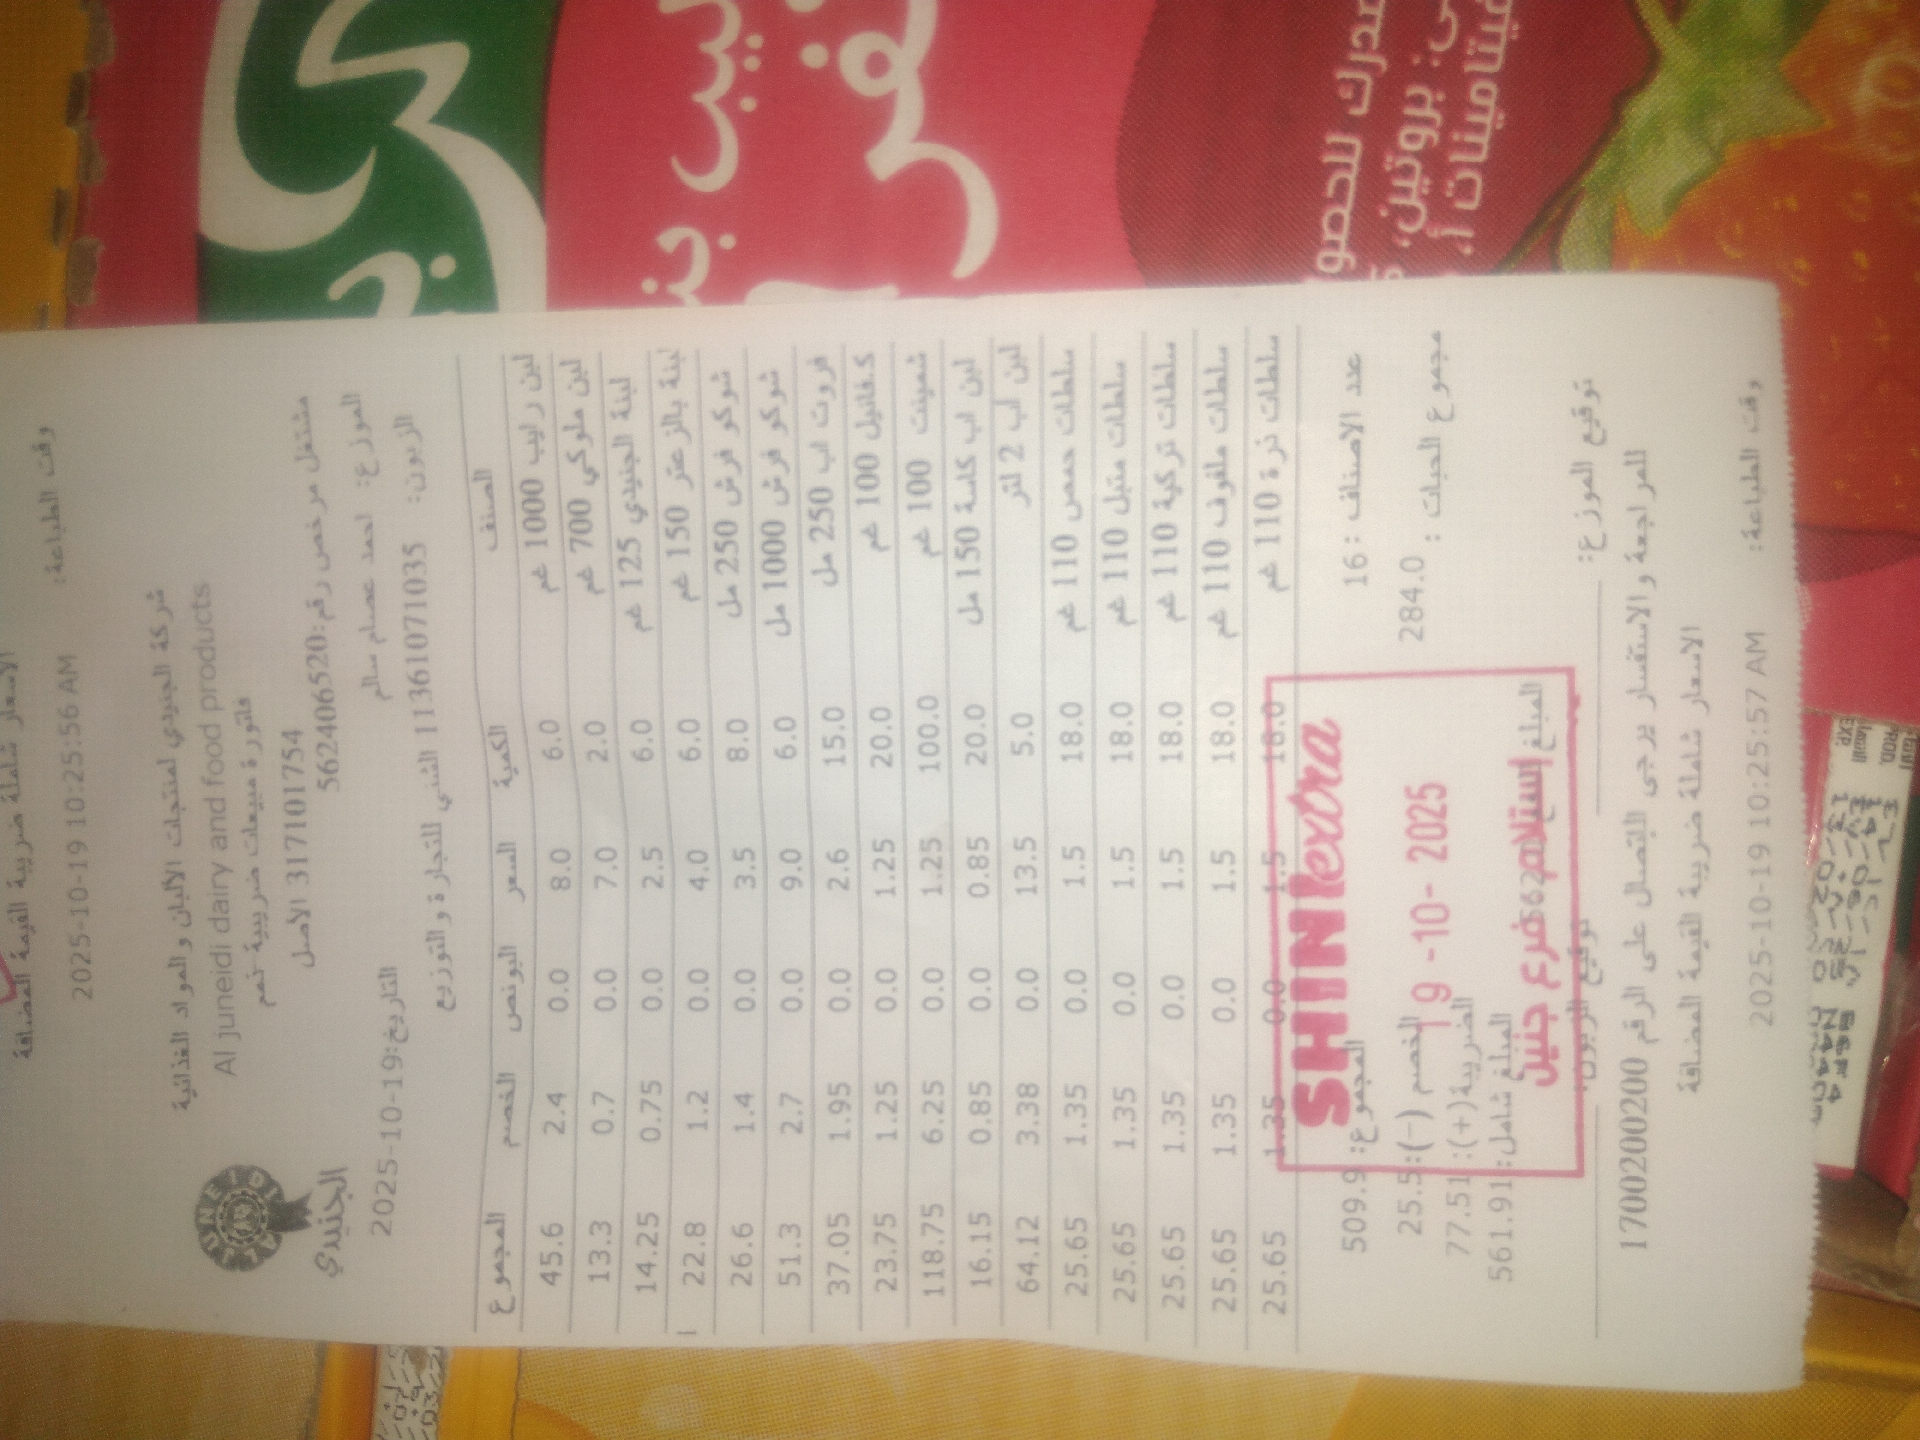 الاسعار شاملة ضريبة القيمة المضافة
وقت الطباعة: 2025-10-19 10:25:56 AM
شركة الجنيدي لمنتجات الألبان والمواد الغذائية
Al juneidi dairy and food products
فاتورة مبيعات ضريبية-نعم
317101754 الأصل
مشتغل مرخص رقم:562406520
JUNEIDI
الجنيدي
الموزع: احمد عصام سالم
التاريخ:2025-10-19
الزبون: 11361071035 الشني للتجارة والتوزيع
الصنف الكمية السعر البونص الخصم المجموع
لبن رايب 1000 غم 6.0 8.0 0.0 2.4 45.6
لبن ملوكي 700 غم 2.0 7.0 0.0 0.7 13.3
لبنة الجنيدي 125 غم 6.0 2.5 0.0 0.75 14.25
لبنة بالزعتر 150 غم 6.0 4.0 0.0 1.2 22.8
شوكو فرش 250 مل 8.0 3.5 0.0 1.4 26.6
شوكو فرش 1000 مل 6.0 9.0 0.0 2.7 51.3
فروت اب 250 مل 15.0 2.6 0.0 1.95 37.05
ك.فانيل 100 غم 20.0 1.25 0.0 1.25 23.75
شمينت 100 غم 100.0 1.25 0.0 6.25 118.75
لبن اب كاسة 150 مل 20.0 0.85 0.0 0.85 16.15
لبن اب 2 لتر 5.0 13.5 0.0 3.38 64.12
سلطات حمص 110 غم 18.0 1.5 0.0 1.35 25.65
سلطات متبل 110 غم 18.0 1.5 0.0 1.35 25.65
سلطات تركية 110 غم 18.0 1.5 0.0 1.35 25.65
سلطات ملفوف 110 غم 18.0 1.5 0.0 1.35 25.65
سلطات ذرة 110 غم 18.0 1.5 0.0 1.35 25.65
عدد الاصناف : 16
المجموع: 509.9
مجموع الحبات : 284.0
الخصم (-):25.5
الضريبة(+):77.51
المبلغ شامل:561.91
SHINI extra
19 -10- 2025
استلام فرع جنين
توقيع الموزع:
توقيع الزبون:
للمراجعة والاستفسار يرجى الاتصال على الرقم 1700200200
الاسعار شاملة ضريبة القيمة المضافة
وقت الطباعة: 2025-10-19 10:25:57 AM